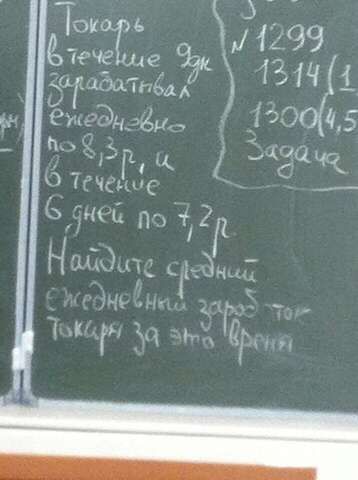 Токарь
в течение 9дн
зарабатывал
ежедневно
по 8,3р, и
в течение
6 дней по 7,2р.
Найдите средний
ежедневный зароб ток
токаря за это время
N 1299
1314(1
1300(4,5
Задача